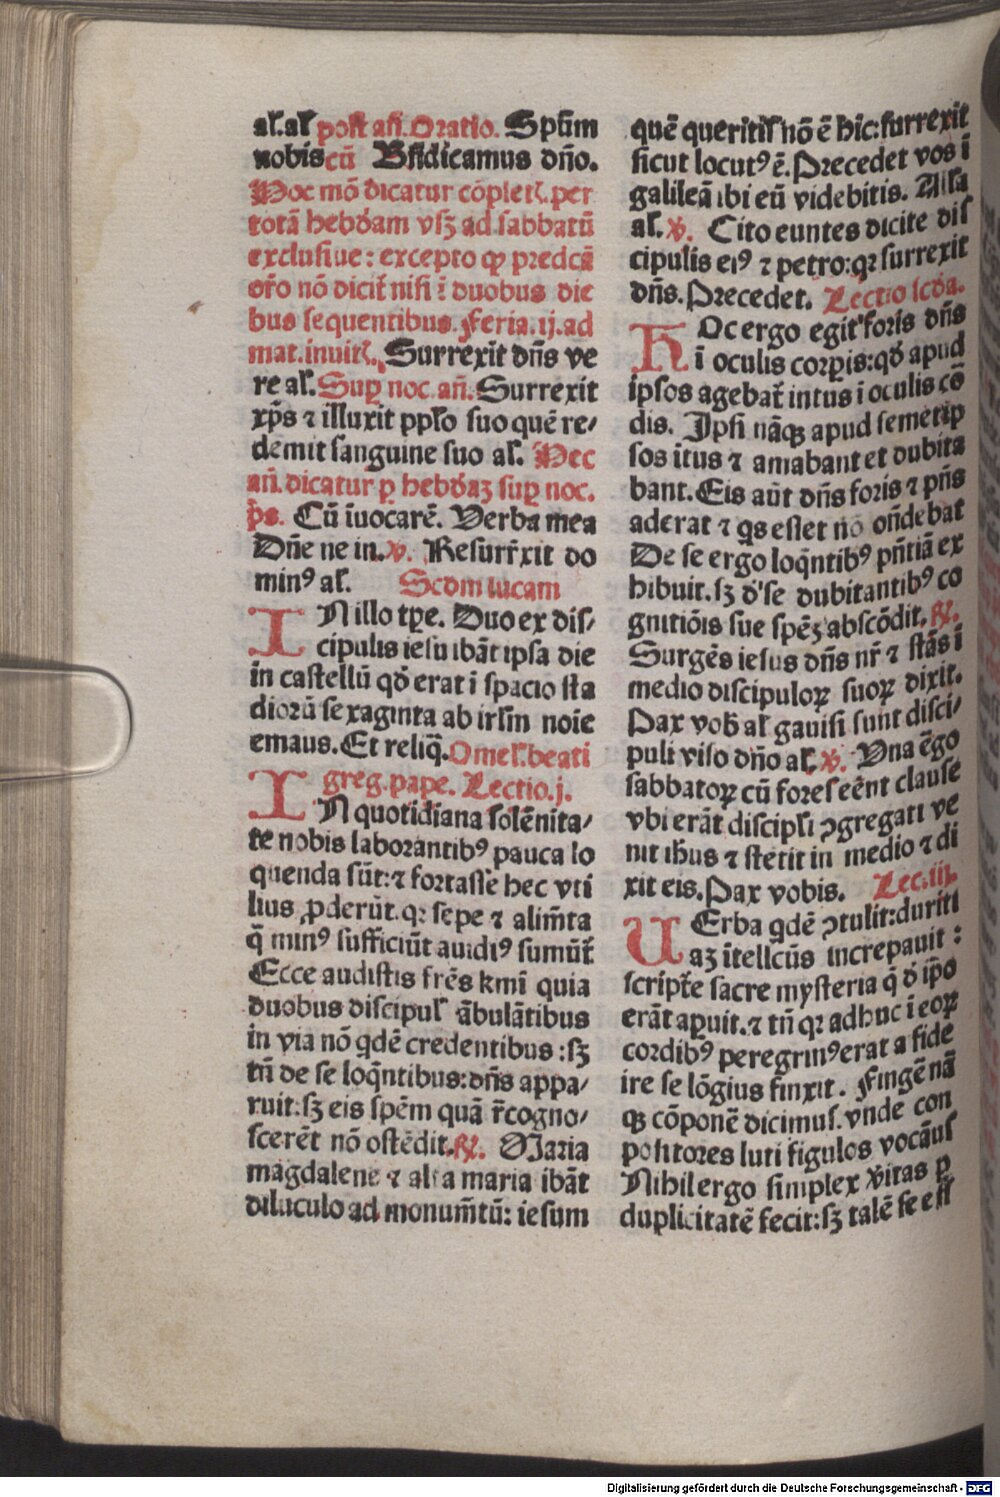 al̄.al̄ post añ.Oratio. Spūm
nobis cū Bñdicamus dño.
Hoc mō dicatur cōplet.per
totā hebdam vsꝫ ad sabbatū
exclusiue: excepto qꝫ predcā
oŕo nō dicit̄ nisi ī duobus die
bus sequentibus.Feria.ij.ad
mat.inuit. Surrexit dñs ve
re al̄.Sup noc añ.Surrexit
xp̄s ⁊ illuxit pplo suo quē re/
demit sanguine suo al̄. Hec
añ.dicatur ꝑ hebdaꝫ suꝑ noc.
p̄s. Cū īuocarē. Verba mea
Dñe ne in.℣. Resurr̄xit do
minꝰ al̄. Scdm lucam
IN illo tꝑe. Duo ex dis/
cipulis iesu ibāt ipsa die
in castellū qđ erat ī spacio sta
diorū sexaginta ab irlm̄ noīe
emaus.Et reliq̄.Omel.beati
greg.pape. Lectio.j.
IN quotidiana solēnita/
te nobis laborantibꝰ pauca lo
quenda sūt:⁊ fortasse hec vti
lius ꝓderūt.qꝛ sepe ⁊ alim̄ta
q̄ minꝰ sufficiūt auidiꝰ sumūt̄
Ecce audistis frēs kmī quia
duobus discipul̄ ābulātibus
in via nō qdē credentibus:sꝫ
tn̄ de se loq̄ntibus:dñs appa/
ruit:sꝫ eis spēm quā r̄cogno/
scerēt nō ostēdit.℟. Maria
magdalene ⁊ alia maria ibāt
diluculo ad monum̄tū: iesum
quē queritis nō ē hic:surrexit
sicut locutꝰ ē.Precedet vos ī
galileā ibi eū videbitis. All'a
al̄.℣. Cito euntes dicite dis
cipulis eiꝰ ⁊ petro:qꝛ surrexit
dñs.Precedet. Lectio scda.
HOc ergo egit foris dñs
ī oculis corꝑis:qđ apud
ipsos agebat̄ intus ī oculis cō
dis. Ipsi nāqꝫ apud semetip
sos ītus ⁊ amabant et dubita
bant.Eis aūt dñs foris ⁊ pn̄s
aderat ⁊ qs esset nō oñdebat
De se ergo loq̄ntibꝰ pn̄tiā ex
hibuit.sꝫ d'se dubitantibꝰ co
gnitiōis sue spēꝫ abscōdit.℟.
Surgēs iesus dñs nr̄ ⁊ stās ī
medio discipuloꝝ suoꝝ dixit.
Pax vob̄ al̄ gauisi sunt disci/
puli viso dño al̄. ℣. Vna ēgo
sabbatoꝝ cū fores eēnt clause
vbi erāt discipl̄i ꝯgregati ve
nit ih̄us ⁊ stetit in medio ⁊ di
xit eis.Pax vobis. Lec.iij.
UErba qdē ꝯtulit:duriti
aꝫ ītellcūs increpauit:
script̄e sacre mysteria q̄ đ ip̄o
erāt aꝑuit.⁊ tn̄ qꝛ adhuc ī eoꝝ
cordibꝰ peregrinꝰ erat a fide
ire se lōgius finxit. Fingē nā
qꝫ cōponē dicimus.vnde con
positores luti figulos vocāus
Nihil ergo simplex v̄itas ꝑ
duplicitatē fecit:sꝫ talē se eis
Digitalisierung gefördert durch die Deutsche Forschungsgemeinschaft - DFG